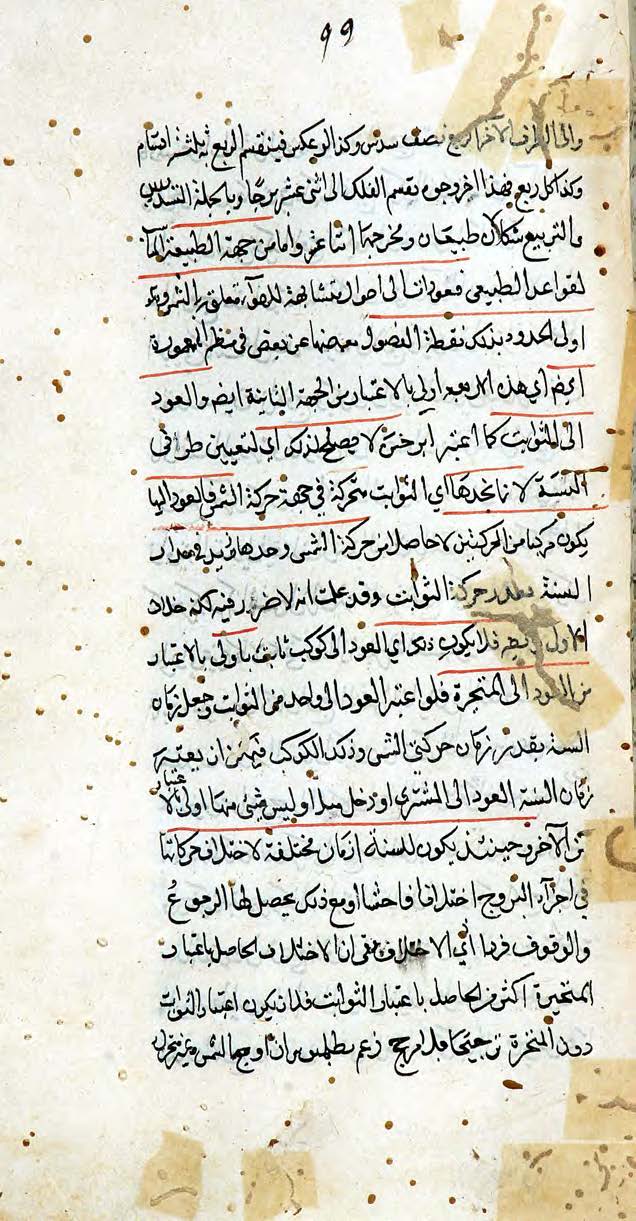 99
والى الطرف الآخر ربع نصف سدس وكذا لو عكس فينقسم الربع ثلثة اقسام
وكذا كل ربع فهذا اخر وجوه تقسم الفلك الى اثنى عشر برجا وبالجملة التسديس
والتربيع شكلان طبيعيان ومخرجهما اثنا عشر واما من جهة الطبيعة
لقواعد الطبيعى فعودات الى احوال متشابهة للهواء تتعلق بالشمس
اولى الحدود بذلك نقطة الفصول بعضها عن بعض فى معظم المعمورة
ايضا اي هذه الاربعة اولى بالاعتبار من الجهة الثانية ايضا والعود
الى الثوابت كما اعتبر ابرخس لا يصلح لذلك اي لتعيين طرفى
السنة لا نا نجدها اي الثوابت متحركة فى جهة حركة الشمس فالعود اليها
يكون مركبا من الحركتين لا حاصلا من حركة الشمس وحدها
السنة بقدر حركة الثوابت وقد علمت انه لا ضرر فيه لكنه خلاف
الاول فلا يكون ذلك اي العود الى كوكب ثابت باولى بالاعتبار
من العود الى المتحيرة فلو اعتبر العود الى واحد من الثوابت وجعل زمان
السنة بقدر زمان حركتى الشمس وذلك الكوكب فيمكن ان يعتبر
زمان السنة العود الى المشترى او زحل مثلا وليس شئ منها اولى بالاعتبار
من الآخر وحينئذ يكون للسنة ازمان مختلفة لاختلاف حركاتها
فى اجزاء البروج اختلافا فاحشا ومع ذلك يحصل لها الرجوع
والوقوف اي الاختلاف بقى ان الاختلاف الحاصل باعتبار
المتحيرة اكثر من الحاصل باعتبار الثوابت فلا يكون اعتبار الثوابت
دون المتحيرة ترجيحا بلا مرجح زعم بطلميوس ان اوج الشمس غير متحرك